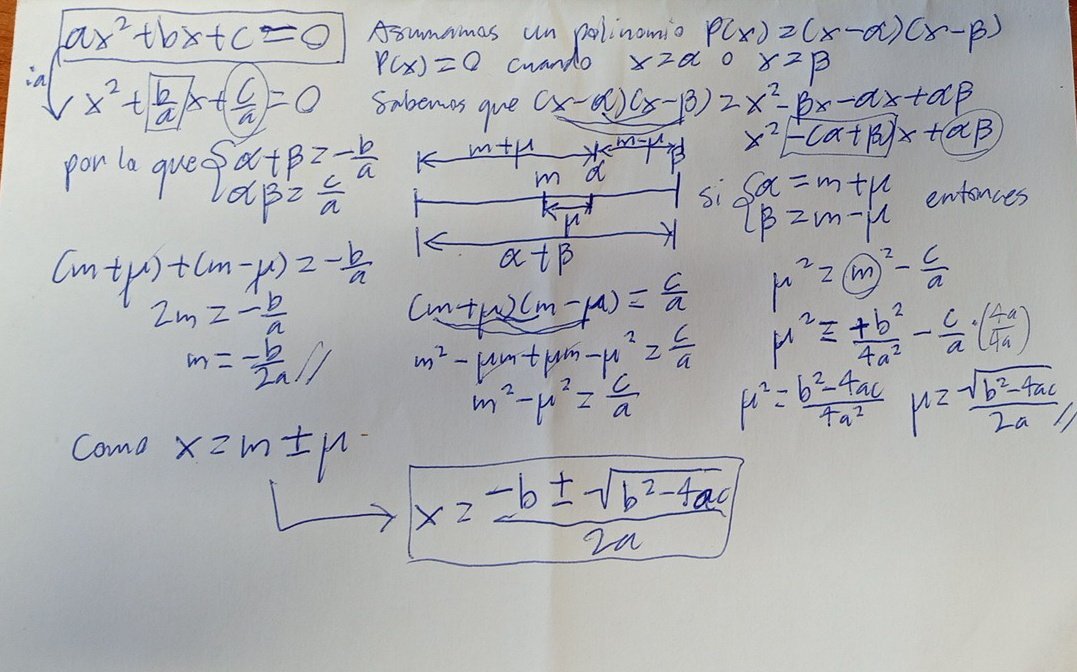 ax²+bx+c=0
Asumamos un polinomio P(x)=(x-α)(x-β)
P(x)=0 cuando x=α o x=β
÷a
x²+b/a x+c/a=0
Sabemos que (x-α)(x-β)=x²-βx-αx+αβ
x²-(α+β)x+αβ
por lo que {α+β=-b/a
αβ=c/a
m+μ m-μ
m α β
μ
α+β
si {α=m+μ
β=m-μ entonces
(m+μ)+(m-μ)=-b/a
2m=-b/a
m=-b/2a//
(m+μ)(m-μ)=c/a
m²-μm+μm-μ²=c/a
m²-μ²=c/a
μ²=m²-c/a
μ²=+b²/4a²-c/a·(4a/4a)
μ²=b²-4ac/4a² μ=√b²-4ac/2a//
Como x=m±μ
x=-b±√b²-4ac/2a